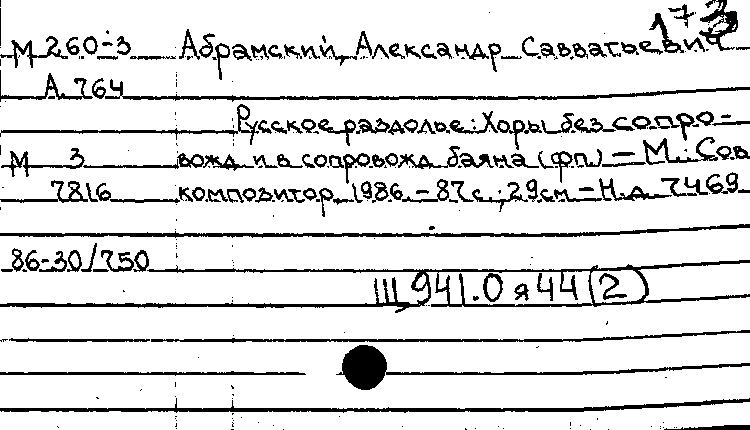 173
М 260-3 Абрамский, Александр Савватьевич
А. 764
Русское раздолье: Хоры без сопро-
М 3 вожд и в сопровожд баяна (фп.) – М.: Сов
7816 композитор, 1986. – 87 с.; 29 см – Н.д. 7469
86-30/750
Щ 941.0 я 44 (2)